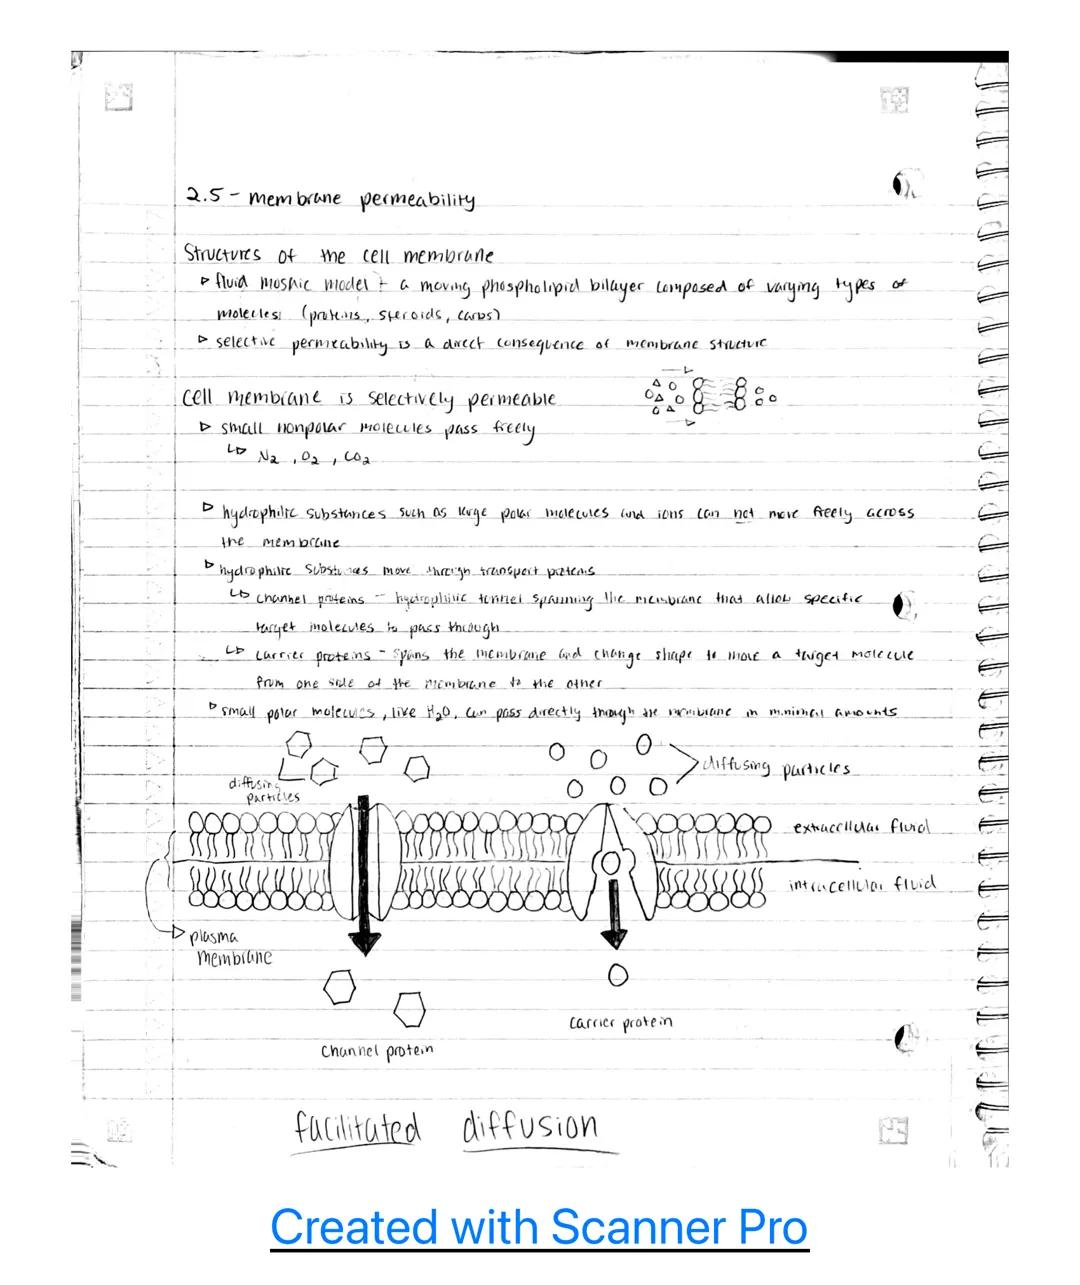 2.5 - membrane permeability
Structures of the cell membrane
▹ fluid mosaic model - a moving phospholipid bilayer composed of varying types of
molecles: (proteins, steroids, carbs)
▹ selective permeability is a direct consequence of membrane structure
Cell membrane is selectively permeable
▹ small nonpolar molecules pass freely
↳ N₂, O₂, CO₂
▹ hydrophilic substances such as large polar molecules and ions can not move freely across
the membrane
▹ hydrophilic substances move through transport proteins
↳ channel proteins - hydrophilic tunnel spanning the membrane that allow specific
target molecules to pass through
↳ carrier proteins - spans the membrane and change shape to move a target molecule
from one side of the membrane to the other
▹ small polar molecules, like H₂O, can pass directly through the membrane in minimal amounts
diffusing
particles
diffusing particles
extracellular fluid
intracellular fluid
plasma
membrane
carrier protein
channel protein
facilitated diffusion
Created with Scanner Pro